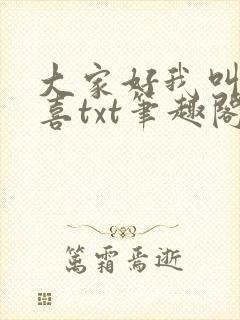 大家好我叫
喜txt笔趣阁
篤霜焉逝